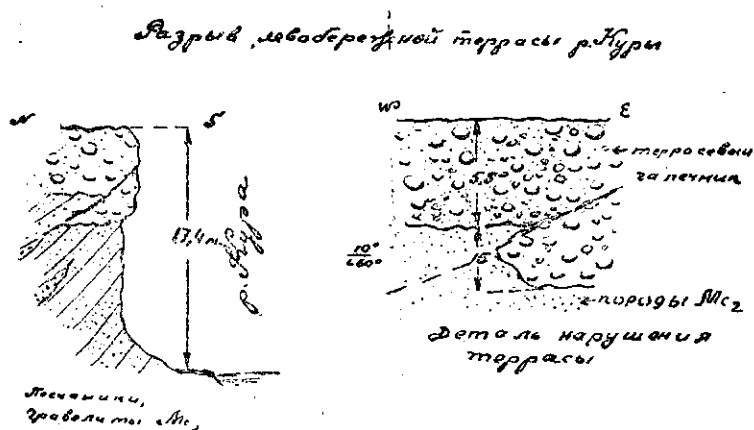 Разрыв левобережной террасы р.Куры
N S
17,4 м
р. Кура
Песчаники,
гравелиты Мс₂
W E
5,5
террасевый
галечник
10°
∠60°
15
породы Мс₂
Деталь нарушения
террасы